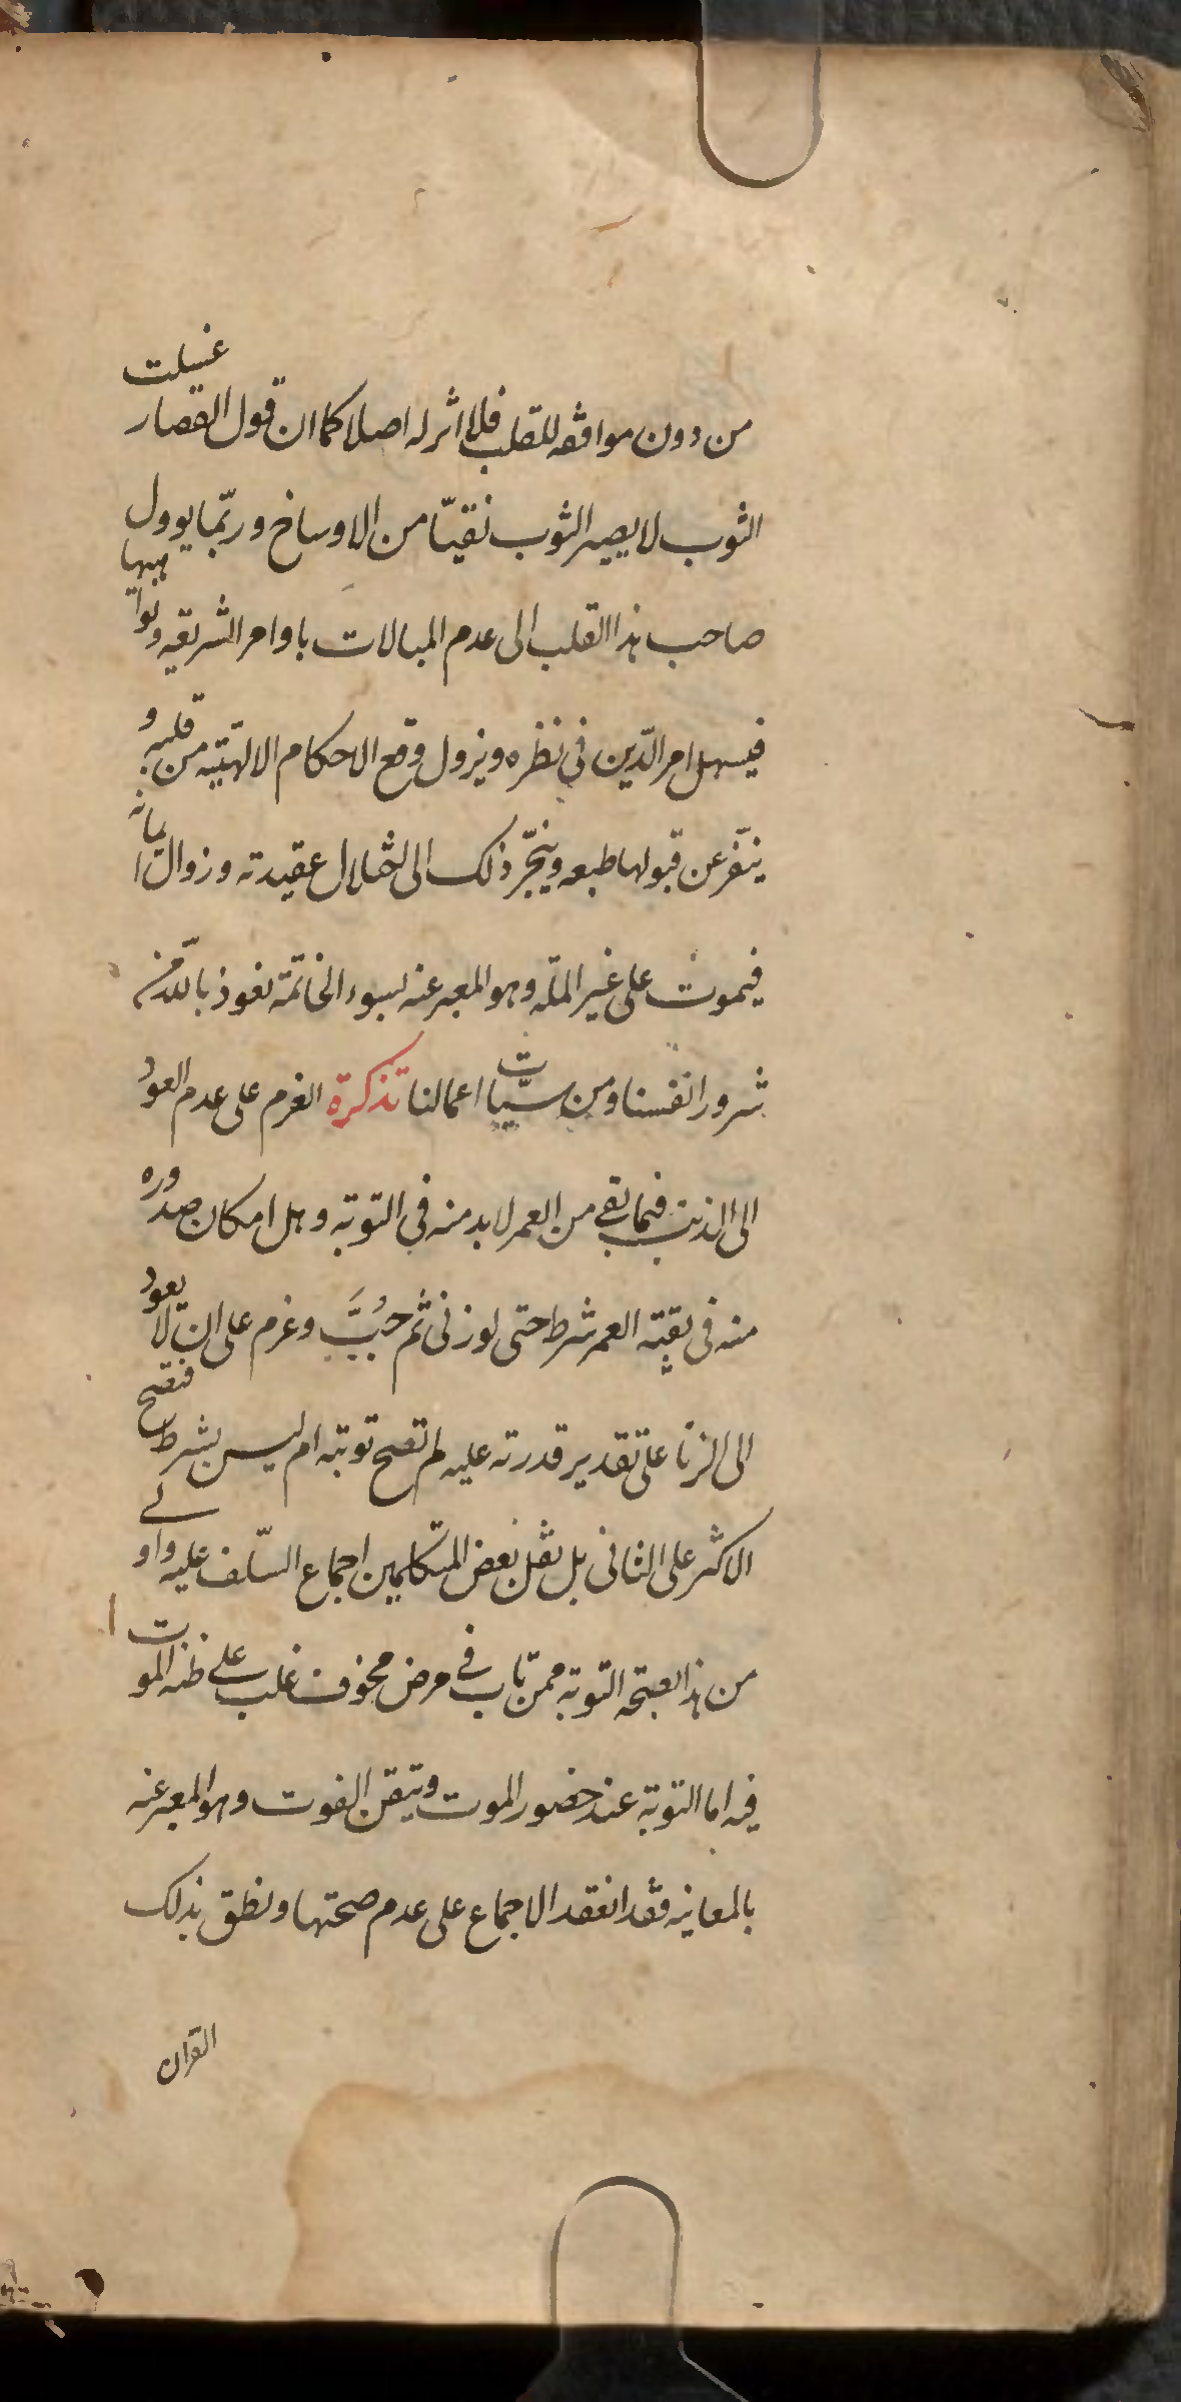 من دون موافقه للقلب فلا اثر له اصلا كما ان قول القصار غسلت
الثوب لا يصير الثوب نقيّا من الاوساخ و ربّما يوول
صاحب هذا القلب الى عدم المبالات باوامر الشريعه و نواهيها
فيسهل امر الدّين في نظره ويزول وقع الاحكام الالهيّه من قلبه و
ينفّر عن قبولها طبعه وينجّر ذلك الى اختلال عقيدته و زوال ايمانه
فيموت على غير الملّه وهو المعبر عنه بسوء الخاتمة نعوذ باللّه من
شرور انفسنا ومن سيّئات اعمالنا تذكرة العزم على عدم العود
الى الذنب فيما بقى من العمر لا بد منه في التوبة و هل امكان صدوره
منه فى بقيّته العمر شرط حتى لو زنى ثم جُبَّ و عزم على ان لا يعود
الى الزنا على تقدير قدرته عليه لم تصح توبته ام ليس بشرط فتصح
الاكثر على الثانى بل نقل بعض المتكلمين اجماع السّلف عليه و اولى
من هذا بصحّة التوبة ممن تاب في مرض مخوف غلب على ظنه الموت
فيه اما التوبة عند حضور الموت و تيقن الفوت وهو المعبر عنه
بالمعاينه فقد انعقد الاجماع على عدم صحتها و نطق بذلك
القران